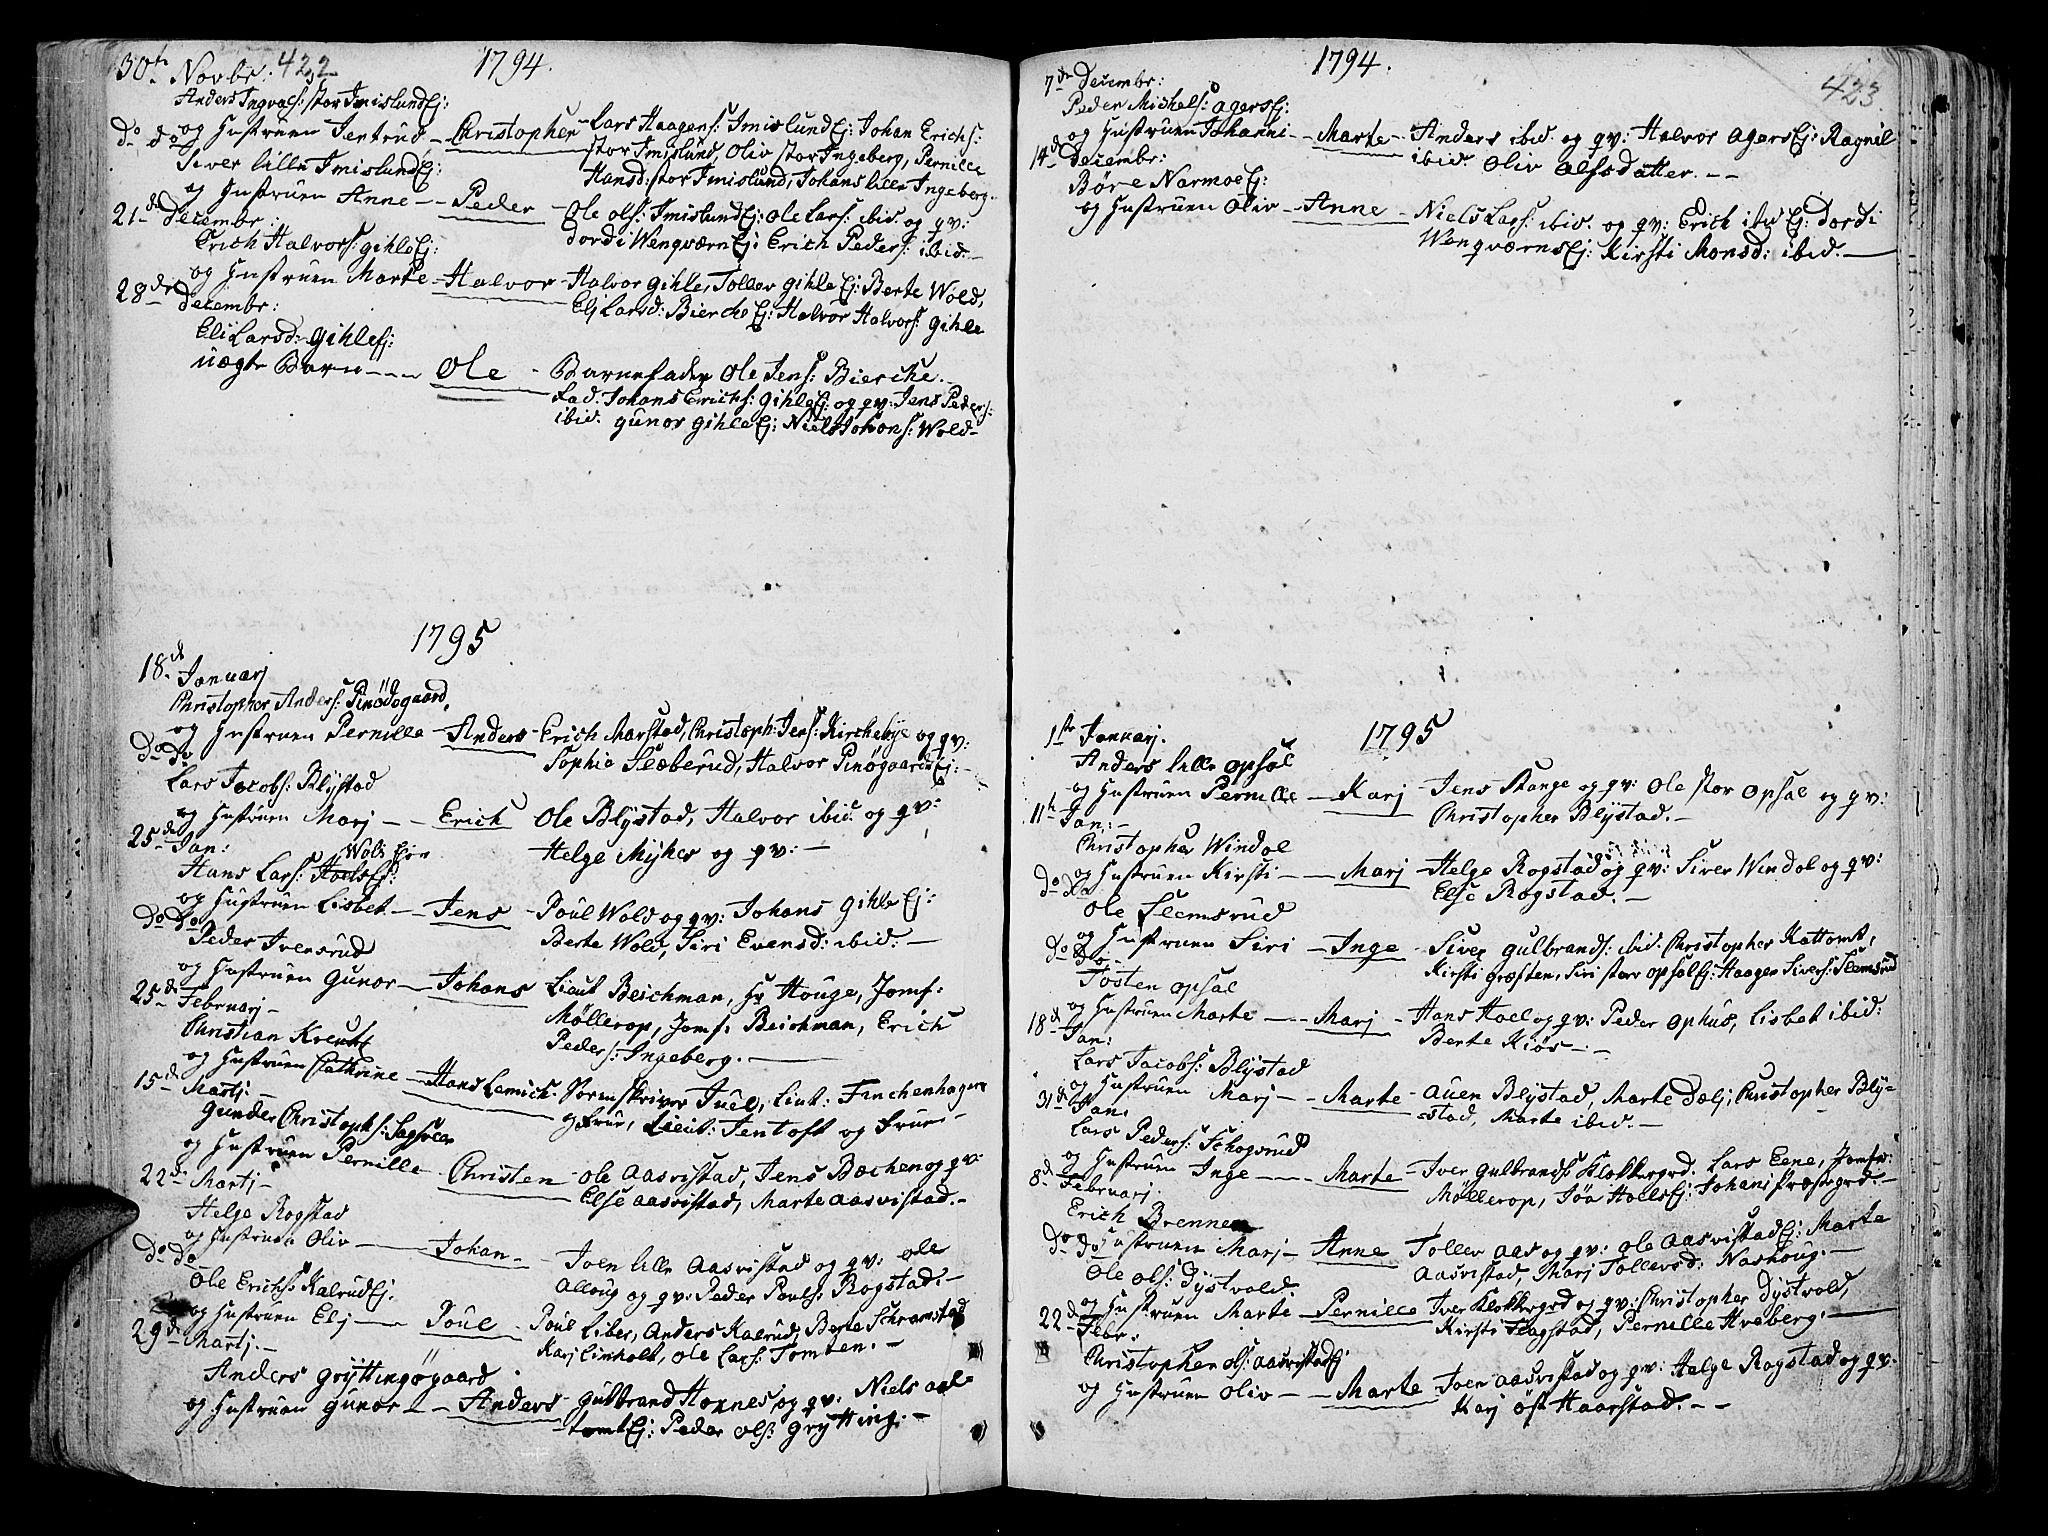 422
1794.
30te Novbr:
Anders Ingvals: stor Imislund Ej:
og Hustruen Jertrud - Christopher - Lars Haagens: Imislund Ej: Johan Erichs:
stor Imislund, Oliv stor Ingeberg, Pernille
Hansd: stor Imislund, Johans lille Ingeberg.
do do
Siver lille Imislund Ej:
og Hustruen Anne - Peder - Ole Ols: Imislund Ej: Ole Lars: ibid. og qv:
Dordi Wenqværn Ej: Erich Peders: ibid. -
21de Decembr:
Erich Halvors: Gihle Ej:
og Hustruen Marte - Halvor - Halvor Gihle, Tollev Gihle Ej: Berte Wold,
Eli Larsd: Bierche Ej: Halvor Halvors: Gihle
28de Decembr:
Eli Larsd: Gihle Ej:
uægte Barn - Ole - Barnefader Ole Jens: Bierche.
Fad: Johans Erichs: Gihle Ej: og qv: Jens Peders:
ibid. Gunor Gihle Ej: Niels Johans: Wold -
1795
18de Januarj
Christopher Anders: Pinødegaard,
og Hustruen Pernille - Anders - Erich Marstad, Christoph: Jens: Kirchebye og qv:
Sophia Slæberud, Halvor Pinøgaard Ej: -
do do
Lars Jacobs: Blystad
og Hustruen Marj - Erich - Ole Blystad, Halvor ibid. og qv:
Helge Myhre og qv: -
25de Jan:
Wols Ejer
Hans Lars: Hoels Ej:
og Hustruen Lisbet - Jens - Poul Wold og qv: Johans Gihle Ej:
Berte Wold, Siri Evensd: ibid: -
do do
Peder Iversrud
og Hustruen Gunor - Johans - Lieut Beichman, Hr Houge, Jomf:
Møllerop, Jomf: Beichman, Erich
Peders: Ingeberg. -
25de Februarj -
Christian Kreutz
og Hustruen Cathrine - Hans Lemich - Sorenskriver Juel, Liut: Finchenhagen
og Frue, Lieut: Jentoft og Frue -
15de Martj -
Gunder Christophs: Sagsveen
og Hustruen Pernille - Christen - Ole Aasvistad, Jens Bæchen og qv:
Else Aasvistad, Marte Aasvistad. -
22de Martj -
Helge Rogstad
og Hustruen Oliv - Johan - Joen lille Aasvistad og qv: Ole
Alloug og qv: Peder Pouls: Rogstad: -
do do
Ole Erichs: Kalrud Ej.
og Hustruen Elj - Poul - Poul Liber, Anders Kalrud, Berte Schramstad
Karj Limholt, Ole Lars: Tomten. -
29de Martj. -
Anders Gryttingøgaard
og Hustruen Gunor - Anders - Gulbrand Honnes, og qv: Niels Aale
tomt Ej: Peder Ols: Grytting. -
423.
1794.
7de Decembr:
Peder Michels: Agers Ej:
og Hustruen Johanni - Marte - Anders ibid. og qv: Halvor Agers Ej: Ragnil
ibid. Oliv Alfsdatter. - -
14de Decembr:
Børe Narmoe Ej:
og Hustruen Oliv - Anne - Niels Lars: ibid. og qv: Erich ibid Ej: Dordi
Wenqværns Ej: Kirsti Monsd: ibid. -
1795
1ste Januarj.
Anders lille Opsal
og Hustruen Pernille - Karj - Jens Stange og qv: Ole stor Opsal og qv:
Christopher Blystad. -
11te Jan: -
Christopher Windol
og Hustruen Kirsti - Marj - Helge Rogstad og qv: Siver Windol og qv:
Else Rogstad. -
do do
Ole Slemsrud
og Hustruen Siri - Inge - Siver Gulbrands: ibid. Christopher Kattomt,
Kirsti Græsten, Siri stor Opsal Ej: Haagen Sivers: Slemsrud
do do -
Tosten Opsal
og Hustruen Marte - Marj - Hans Hoel og qv: Peder Ophus, Lisbet ibid:
Berte Kiøs -:-
18de Jan:
Lars Jacobs: Blystad
og Hustruen Marj - Marte - Auen Blystad, Marte Dælj, Christopher Bly=
=stad, Marte ibid. -
31de Jan:
Lars Peders: Schogsrud
og Hustruen Inge - Marte - Iver Gulbrands: Klokkergrd. Lars Eene, Jomfr:
Møllerop, Jøa Holls Ej: Johans Præstegrd. -
8de Februarj.
Erich Brennen
Hustruen Marj - Anne - Tollev Aas og qv: Ole Aasvistad Ej: Marte
Aasvistad, Marj Tollevsd: Naskoug. -
do do
Ole Ols: Dystvold.
og Hustruen Marte - Pernille - Iver Klokkergrd og qv: Christopher Dystvold,
Kirsti Flagstad, Pernille Hveberg. -
22de Febr:
Christopher Ols: Aasvistad Ej
og Hustruen Oliv - Marte - Joen Aasvistad og qv: Helge Rogstad og qv:
Karj øst Haarstad. - -